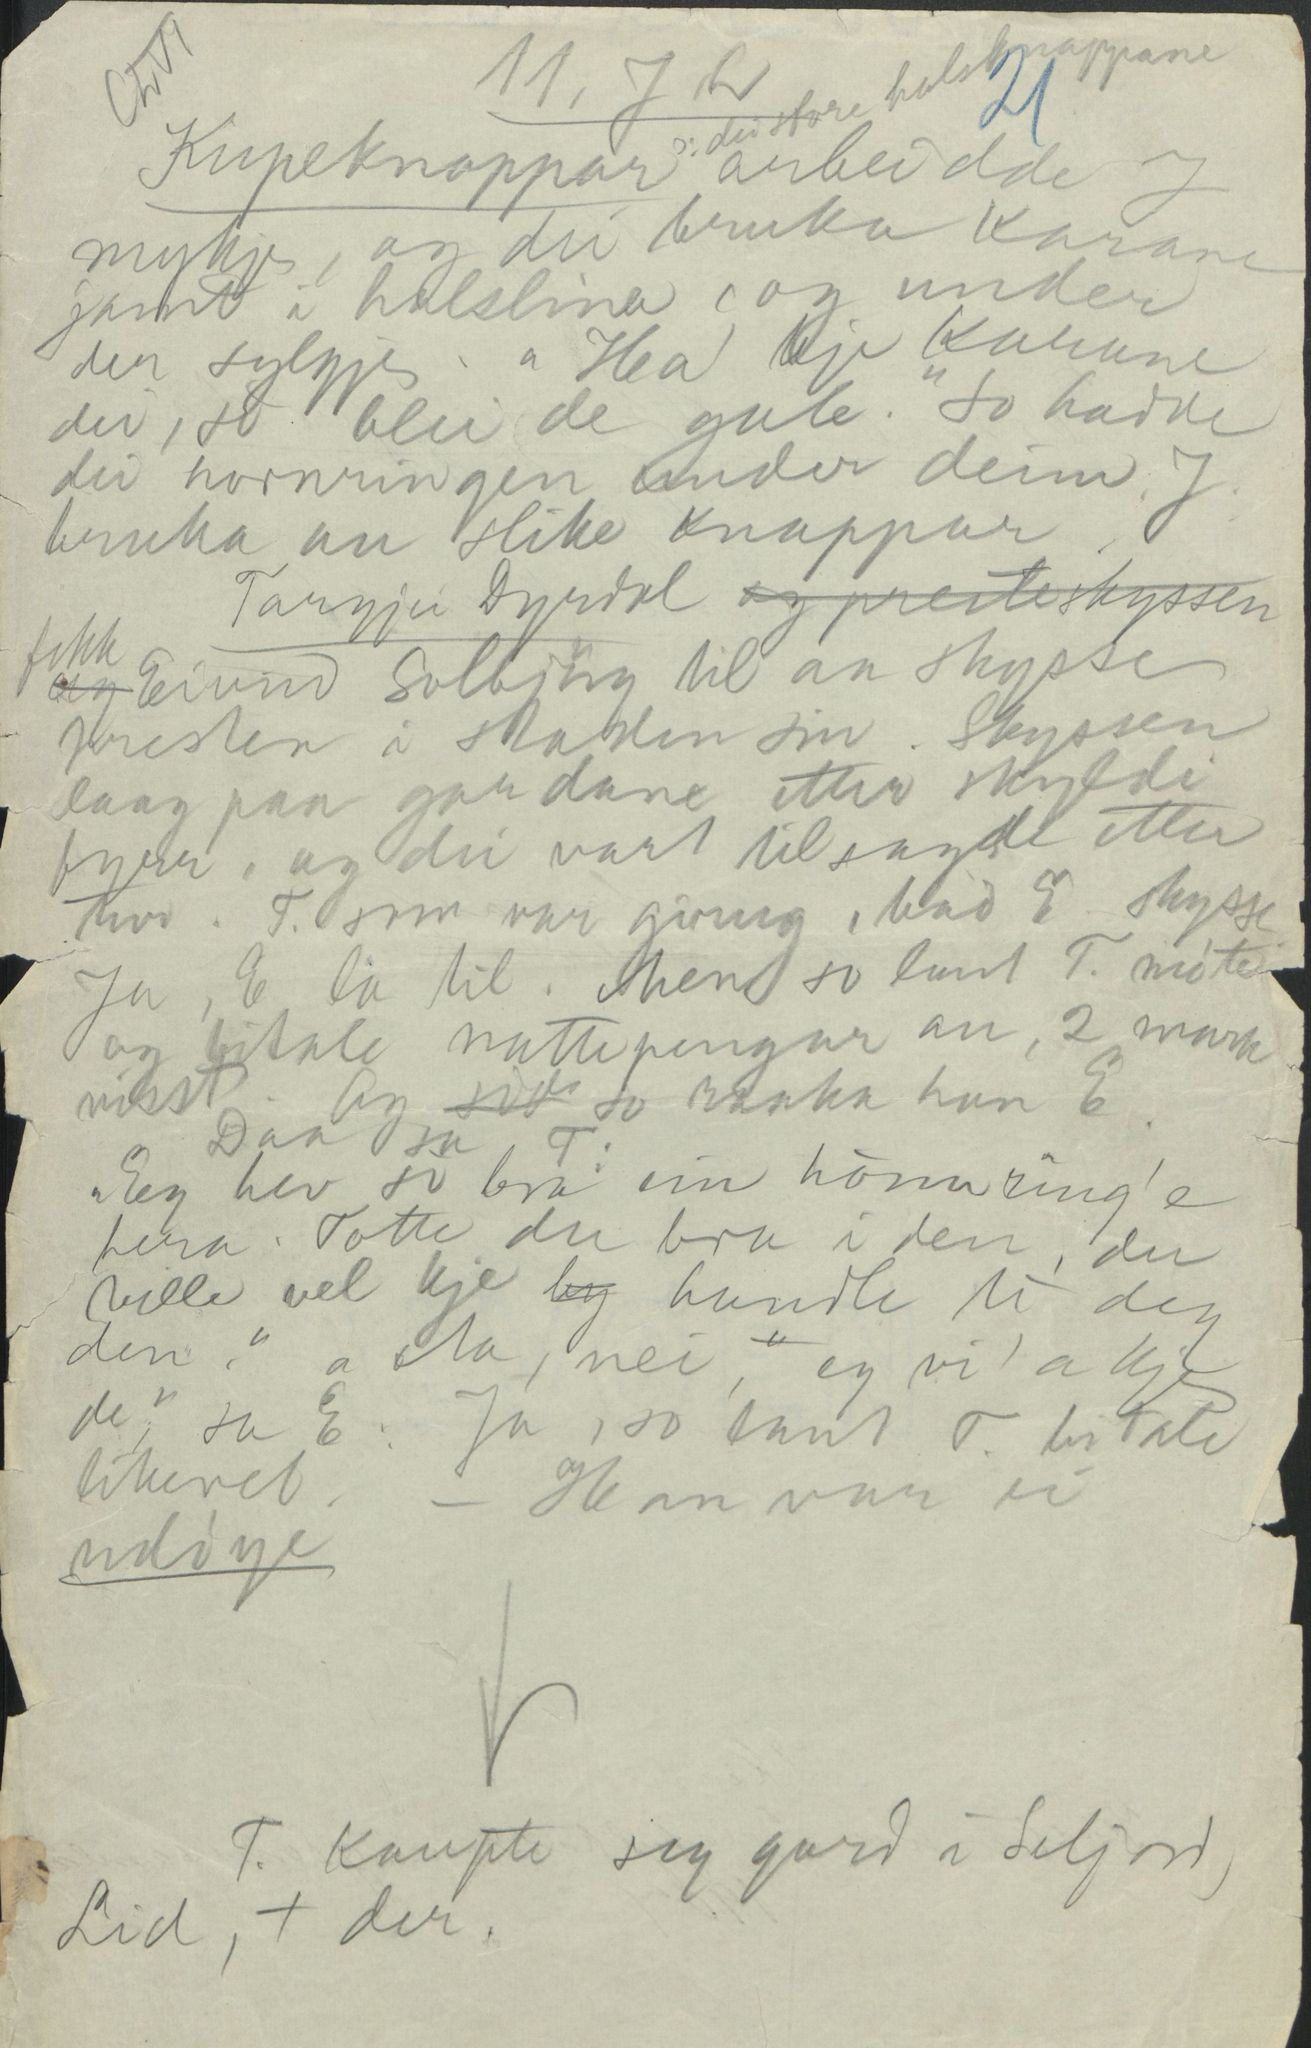 11, J h
21
ɔ: dei store halsknappane
Kupeknappar arbeidde J
mykje, og dei bruka karane
jamt i halslina, og under
der sylgje. "Hea kje karane
dei, so blei de gale." So hadde
dei hornringen under deim. J.
bruka au slike knappar.
Targjei Dyrdal og presteskyssen
fekk
og Eivind Solbjørg til aa skysse
presten i staden sin. Skyssen
laag paa gardane etter skyldi
fyrr, og dei vart tilsagde etter
tur. T. som var gjerug, bad E skysse
Ja, E la til. Men so laut T. møte
og bitale nattepengar au, 2 mark
visst. Og so raaka han E.
Daa sa T.
"Eeg hev so bra ein hönnring'e
hera. Totte du bra i den, du
ville vel kje handle te deg
den." "Aa, nei," eg vi'a kje
de," sa E. Ja, so laut T. bitale
likevel. – Han var ei
udöye
T. kaupte seg gard i Seljord,
Lid, + der.